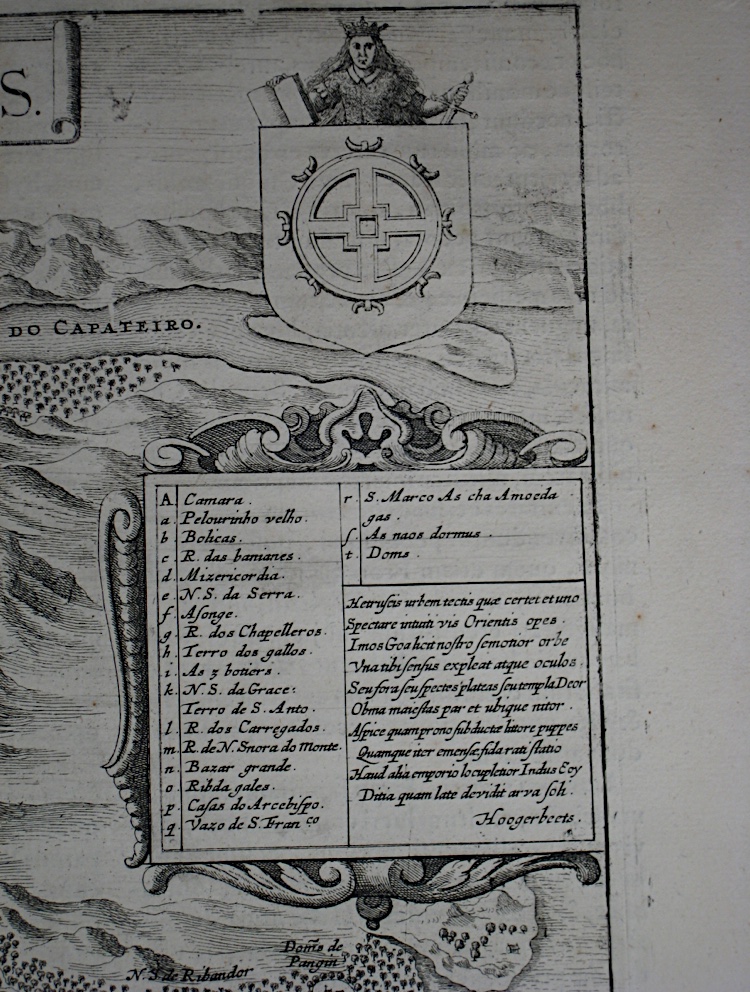 S.
DO CAPATEIRO.
A. Camara.
a. Pelourinho velho.
b Bolicas.
c R. das banianes.
d. Mizericordia.
e. N.S. da Serra.
f. Asonge.
g R. dos Chapelleros.
h. Terro dos gallos.
i. As 3 botiers.
k. N.S. da Grace:
Terro de S. Anto.
l. R. dos Carregados.
m. R. de N. Snora do monte.
n. Bazar grande.
o. Ribda gales.
p. Casas do Arcebispo.
q Vazo de S. Fran co
r. S. Marco As cha Amoeda
gas.
ſ. As naos dormus.
t. Doms.
Hetruscis urbem tectis quæ certet et uno
Spectare intuiti vis Orientis opes.
Imos Goa licit nostro semotior orbe
Vna tibi sensus expleat atque oculos.
Seu fora seu spectes plateas seu templa Deor
Obma maiestas par et ubique nitor.
Aspice quam prono subductæ littore puppes
Quamque iter emensæ fida rati statio
Haud alia emporio locupletior Indus Eoy
Ditia quam late devidit arva sch.
Hoogerbeets.
Doms de
Pangin
N.S. de Ribandor